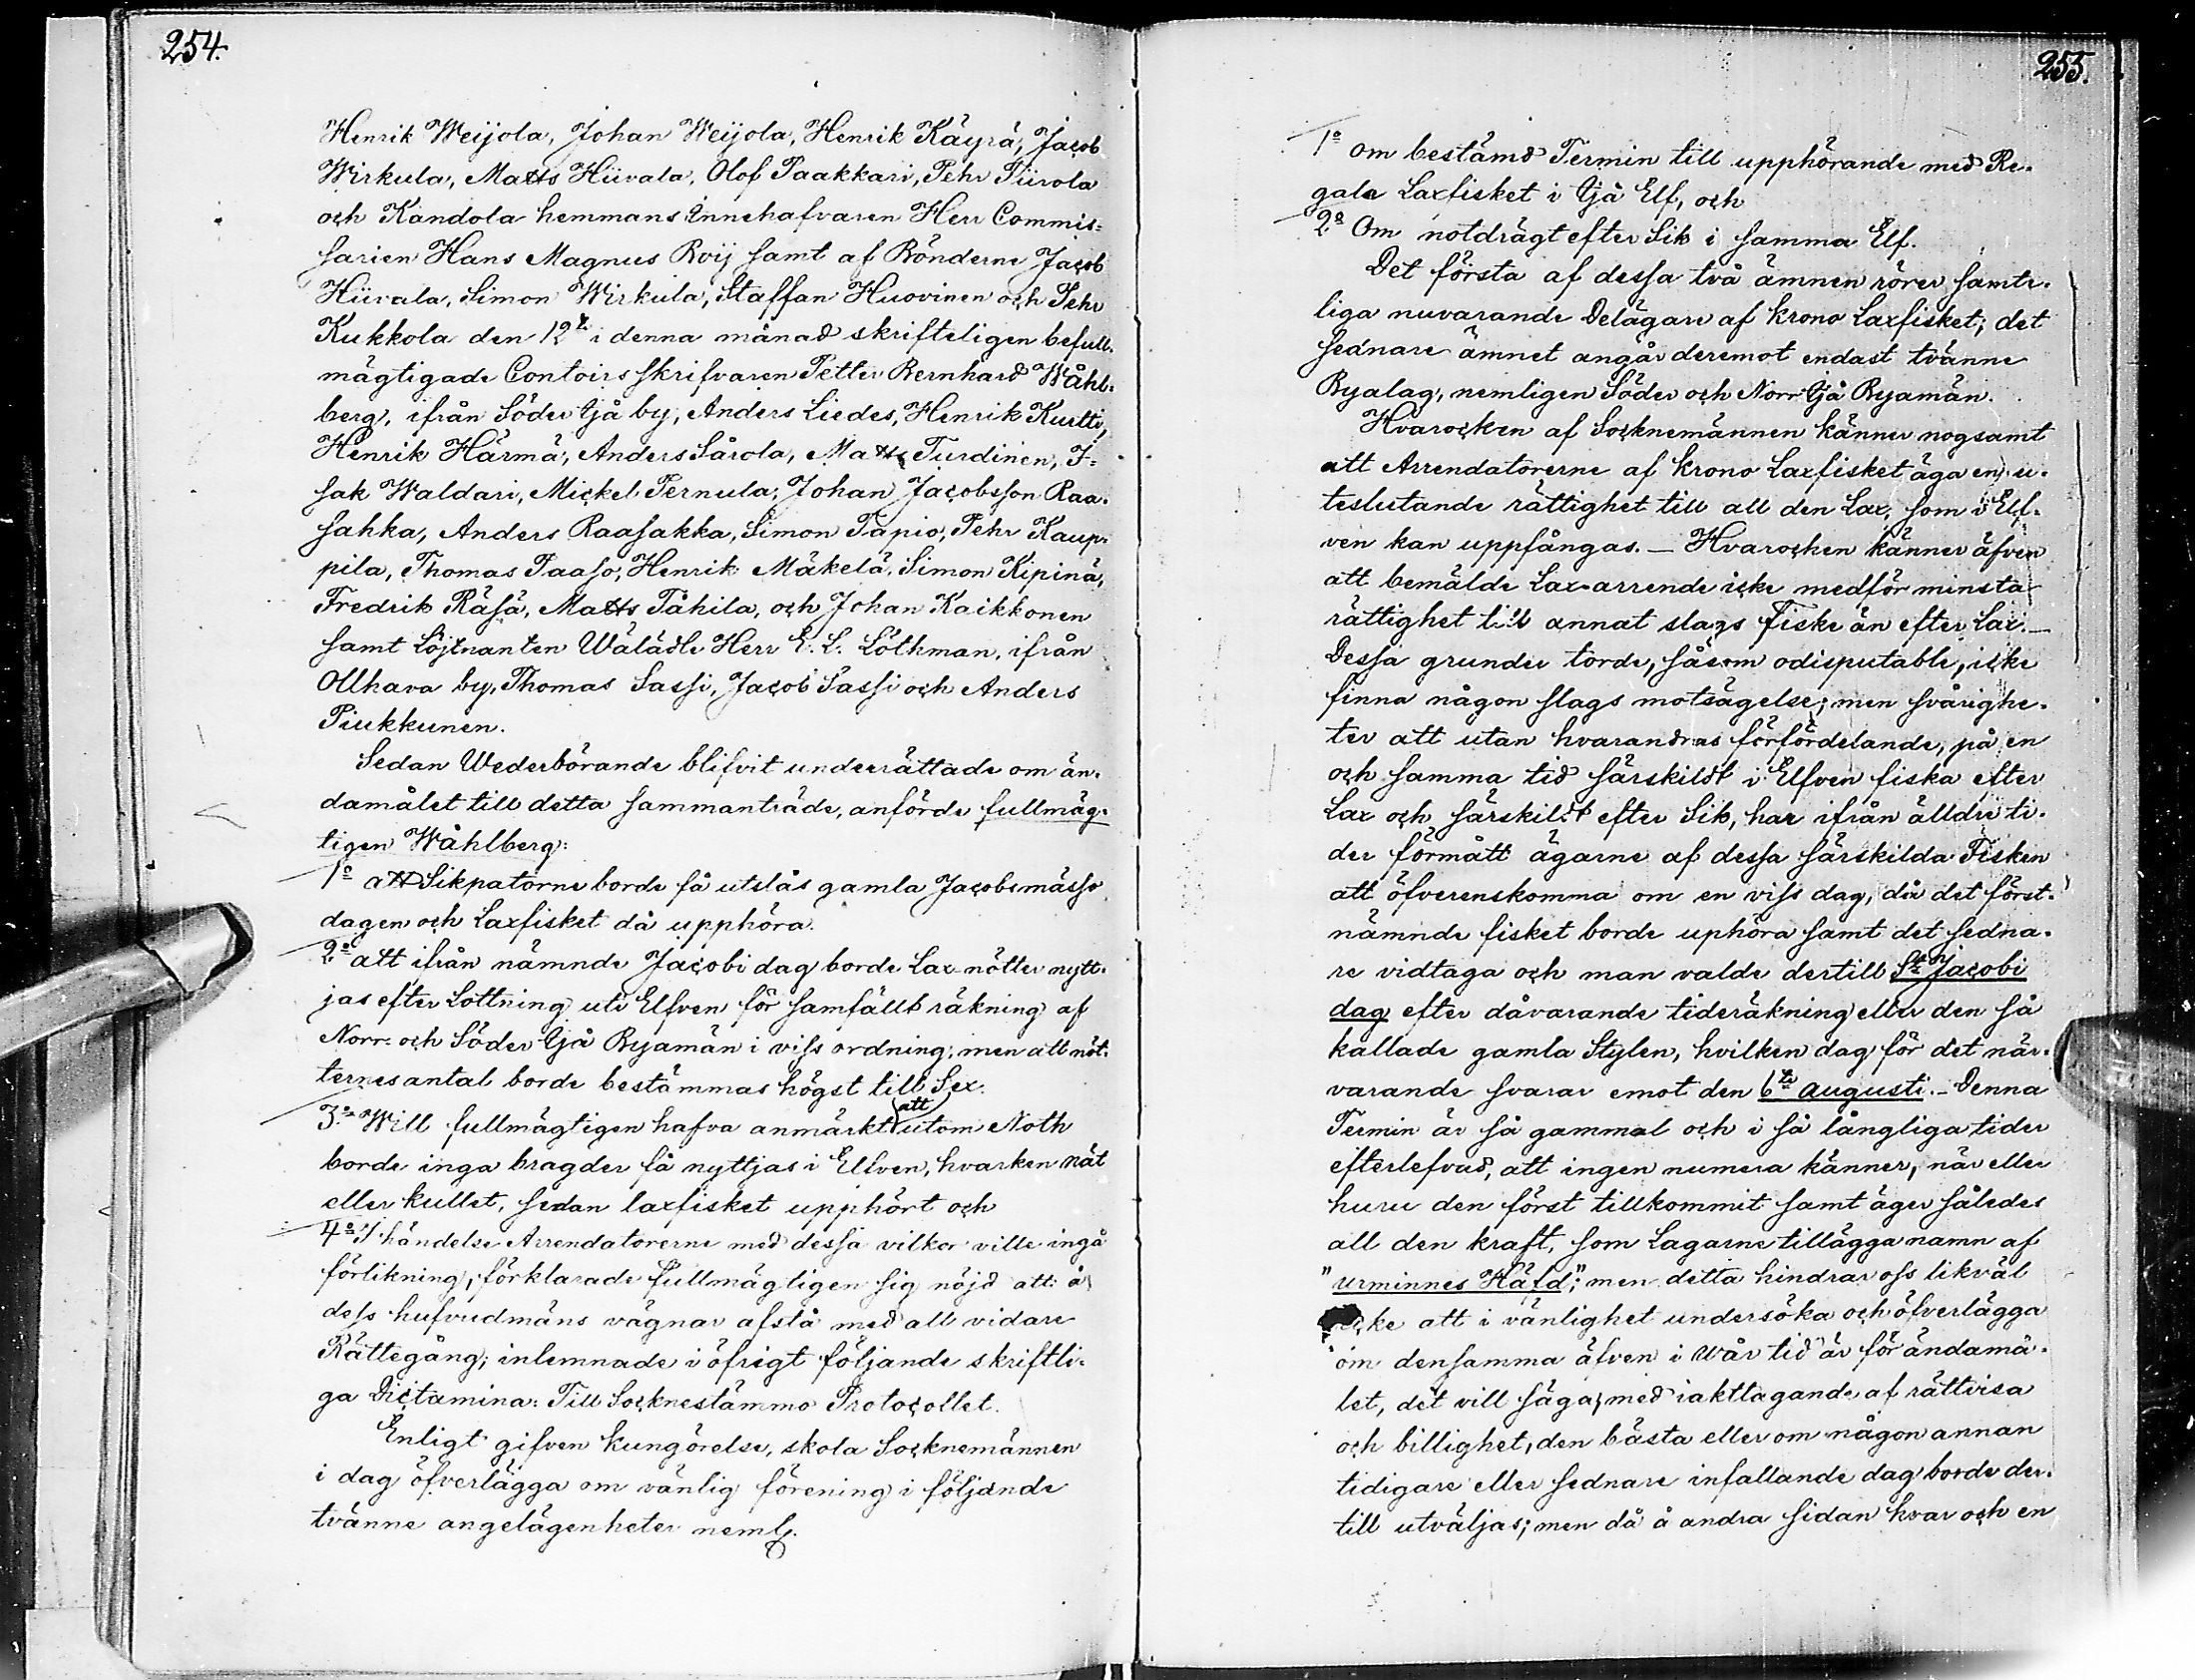 254.
Henrik Weijola, Johan Weijola, Henrik Käyrä, Jacob
Wirkula, Matts Hiivala, Olof Paakkari, Pehr Piirola
och Kandola hemmans Innehafvaren Herr Commis=
sarien Hans Magnus Roij samt af Bönderne Jacob
Hiivala, Simon Wirkula, Staffan Huovinen och Pehr
Kukkola den 12te i denna månad skrifteligen befull-
mägtigade Contoirsskrifvaren Petter Bernhard Wåhl-
berg, ifrån Söder Ijå by, Anders Liedes, Henrik Kurtti,
Henrik Härmä, Anders Sårola, Matts Turdinen, I=
sak Waldari, Mickel Pernula, Johan Jacobsson Raa-
sahka, Anders Raasakka, Simon Tapio, Pehr Kaup-
pila, Thomas Paaso, Henrik Mäkelä, Simon Kipinä,
Fredrik Räsä, Matts Tåhila, och Johan Kaikkonen
samt Löjtnanten Wälädle Herr E. L. Löthman, ifrån
Olhava by, Thomas Sassi, Jacob Sassi och Anders
Piukkunen.
Sedan Wederbörande blifvit underrättade om än-
damålet till detta sammanträde, anförde fullmäg-
tigen Wåhlberg:
1o att Sikpatorne borde få utslås gamla Jacobsmässo
dagen och Laxfisket då upphöra.
2o att ifrån nämnde Jacobi dag borde Lax-nötter nytt-
jas efter Lottning uti Elfven för samfällt räkning af
Norr- och Söder Ijå Byamän i viss ordning, men att nöt-
ternes antal borde bestämmas högst till Sex.
3o Will fullmägtigen hafva anmärkt att utom Noth
borde inga bragder få nyttjas i Elfven, hvarken nät
eller kullet, sedan laxfisket upphört och
4o I händelse Arrendatorerne med dessa vilkor ville ingå
förlikning, förklarade fullmägtigen sig nöjd att å
dess hufvudmäns vägnar afstå med all vidare
Rättegång; inlemnade i öfrigt följande skriftli-
ga Dictamina: Till Socknestämmo Protocollet.
Enligt gifven kungörelse, skola Socknemännen
i dag öfverlägga om vänlig förening i följande
tvänne angelägenheter neml.
255.
1o om bestämd Termin till upphörande med Re-
gala Laxfisket i Ijå Elf, och
2o Om notdrägt efter Sik i samma Elf.
Det första af dessa två ämnen rörer samte-
liga nuvarande Delägare af Krono Laxfisket; det
sednare ämnet angår deremot endast tvänne
Byalag, nemligen Söder och Norr Ijå Byamän.
Hvarocken af Socknemännen känner nogsamt
att Arrendatorerne af Krono Laxfisket äga en u-
teslutande rättighet till all den Lax, som i Elf-
ven kan uppfångas. — Hvarocken känner äfven
att bemälde Lax-arrende icke medför minsta
rättighet till annat slags Fiske än efter Lax. —
Dessa grunder torde, såsom odisputable, icke
finna någon slags motsägelse; men svårighe-
ter att utan hvarandras förfördelande, på en
och samma tid särskildt i Elfven fiska efter
Lax och särskildt efter Sik, har ifrån älldre ti-
der förmått ägarne af dessa särskilda Fisken
att öfverenskomma om en viss dag, då det först-
nämnde fisket borde uphöra samt det sedna-
re vidtaga och man valde dertill St Jacobi
dag efter dåvarande tideräkning eller den så
kallade gamla Stylen, hvilken dag för det när-
varande svarar emot den 6te augusti. — Denna
Termin är så gammal och i så långliga tider
efterlefvad, att ingen numera känner, när eller
huru den först tillkommit samt äger således
all den kraft, som Lagarne tillägga namn af
"urminnes Häfd"; men detta hindrar oss likväl
icke att i vänlighet undersöka och öfverlägga
om densamma äfven i wår tid är för ändamå-
let, det vill säga, med iakttagande af rättvisa
och billighet, den bästa eller om någon annan
tidigare eller sednare infallande dag borde der-
till utväljas; men då å andra sidan hvar och en